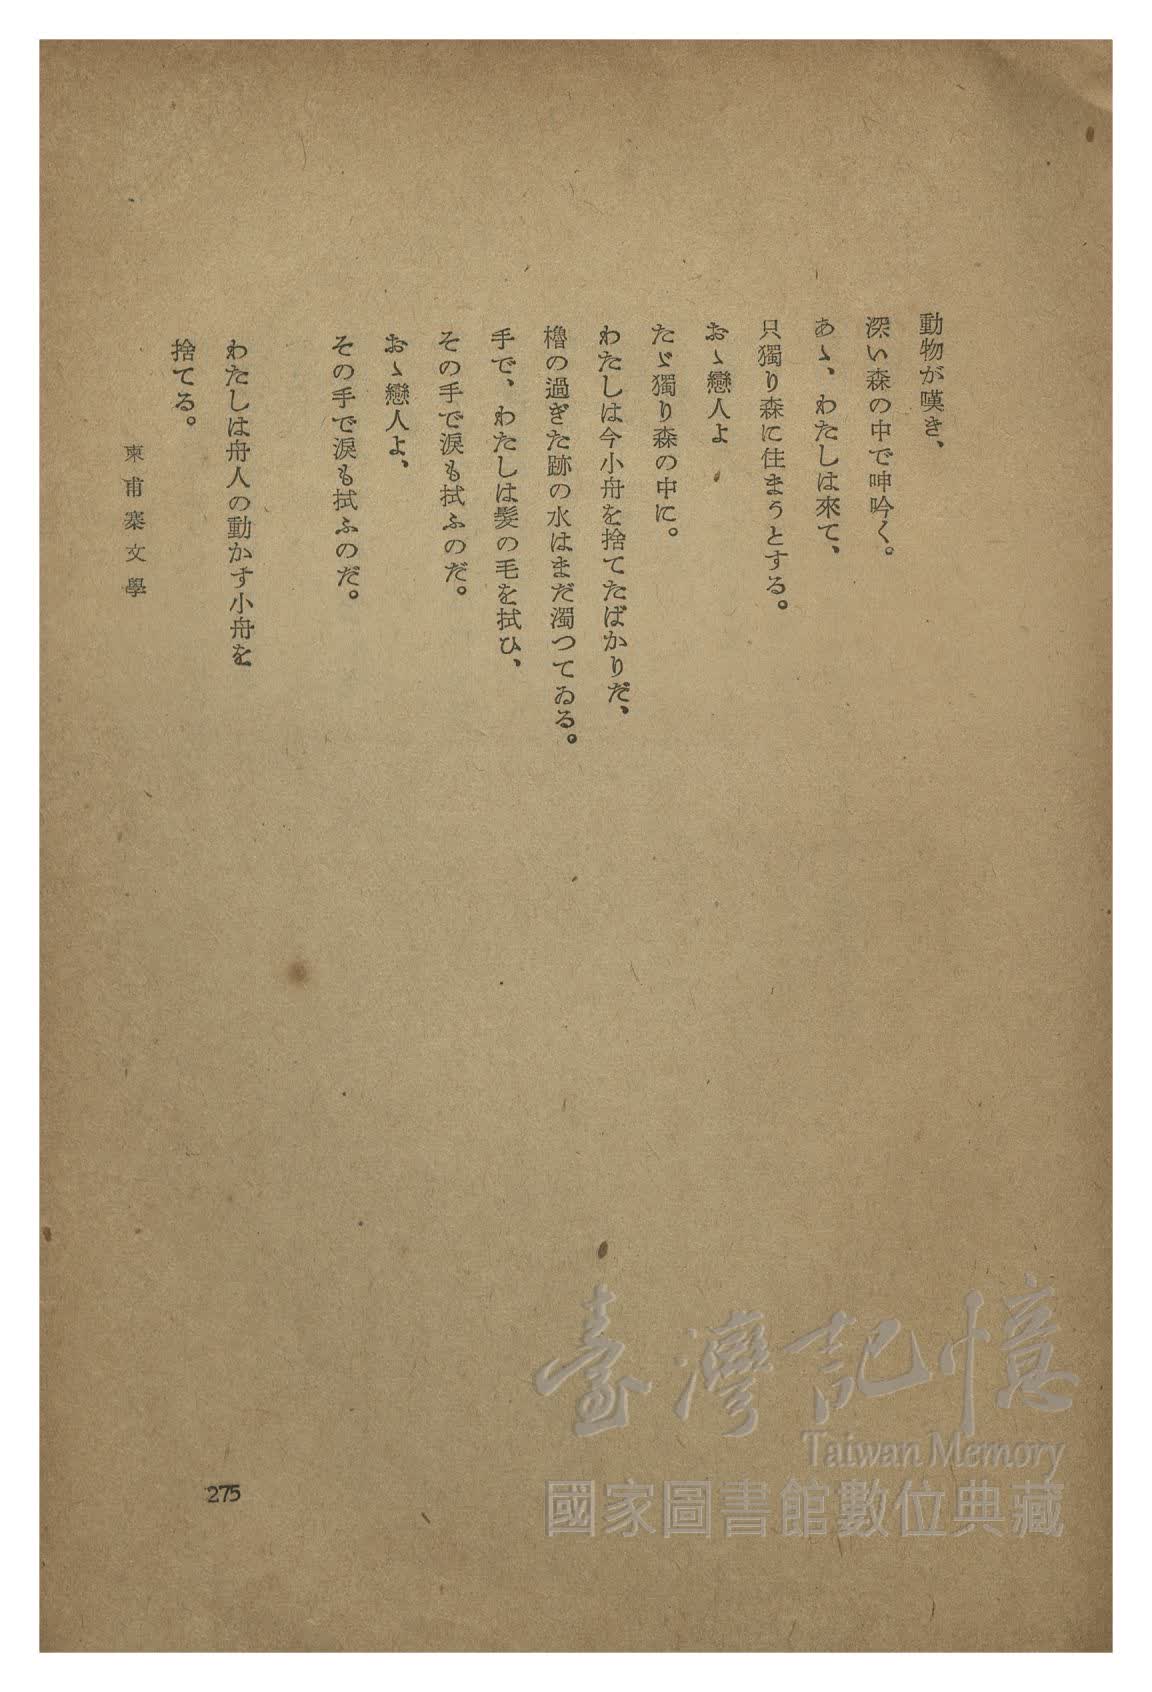 動物が嘆き、
深い森の中で呻吟く。
あゝ、わたしは來て、
只獨り森に住まうとする。
おゝ戀人よ
たゞ獨り森の中に。
わたしは今小舟を捨てたばかりだ、
櫓の過ぎた跡の水はまだ濁つてゐる。
手で、わたしは髮の毛を拭ひ、
その手で淚も拭ふのだ。
おゝ戀人よ、
その手で淚も拭ふのだ。
わたしは舟人の動かす小舟を
捨てる。
柬甫寨文學
275
臺灣記憶
Taiwan Memory
國家圖書館數位典藏